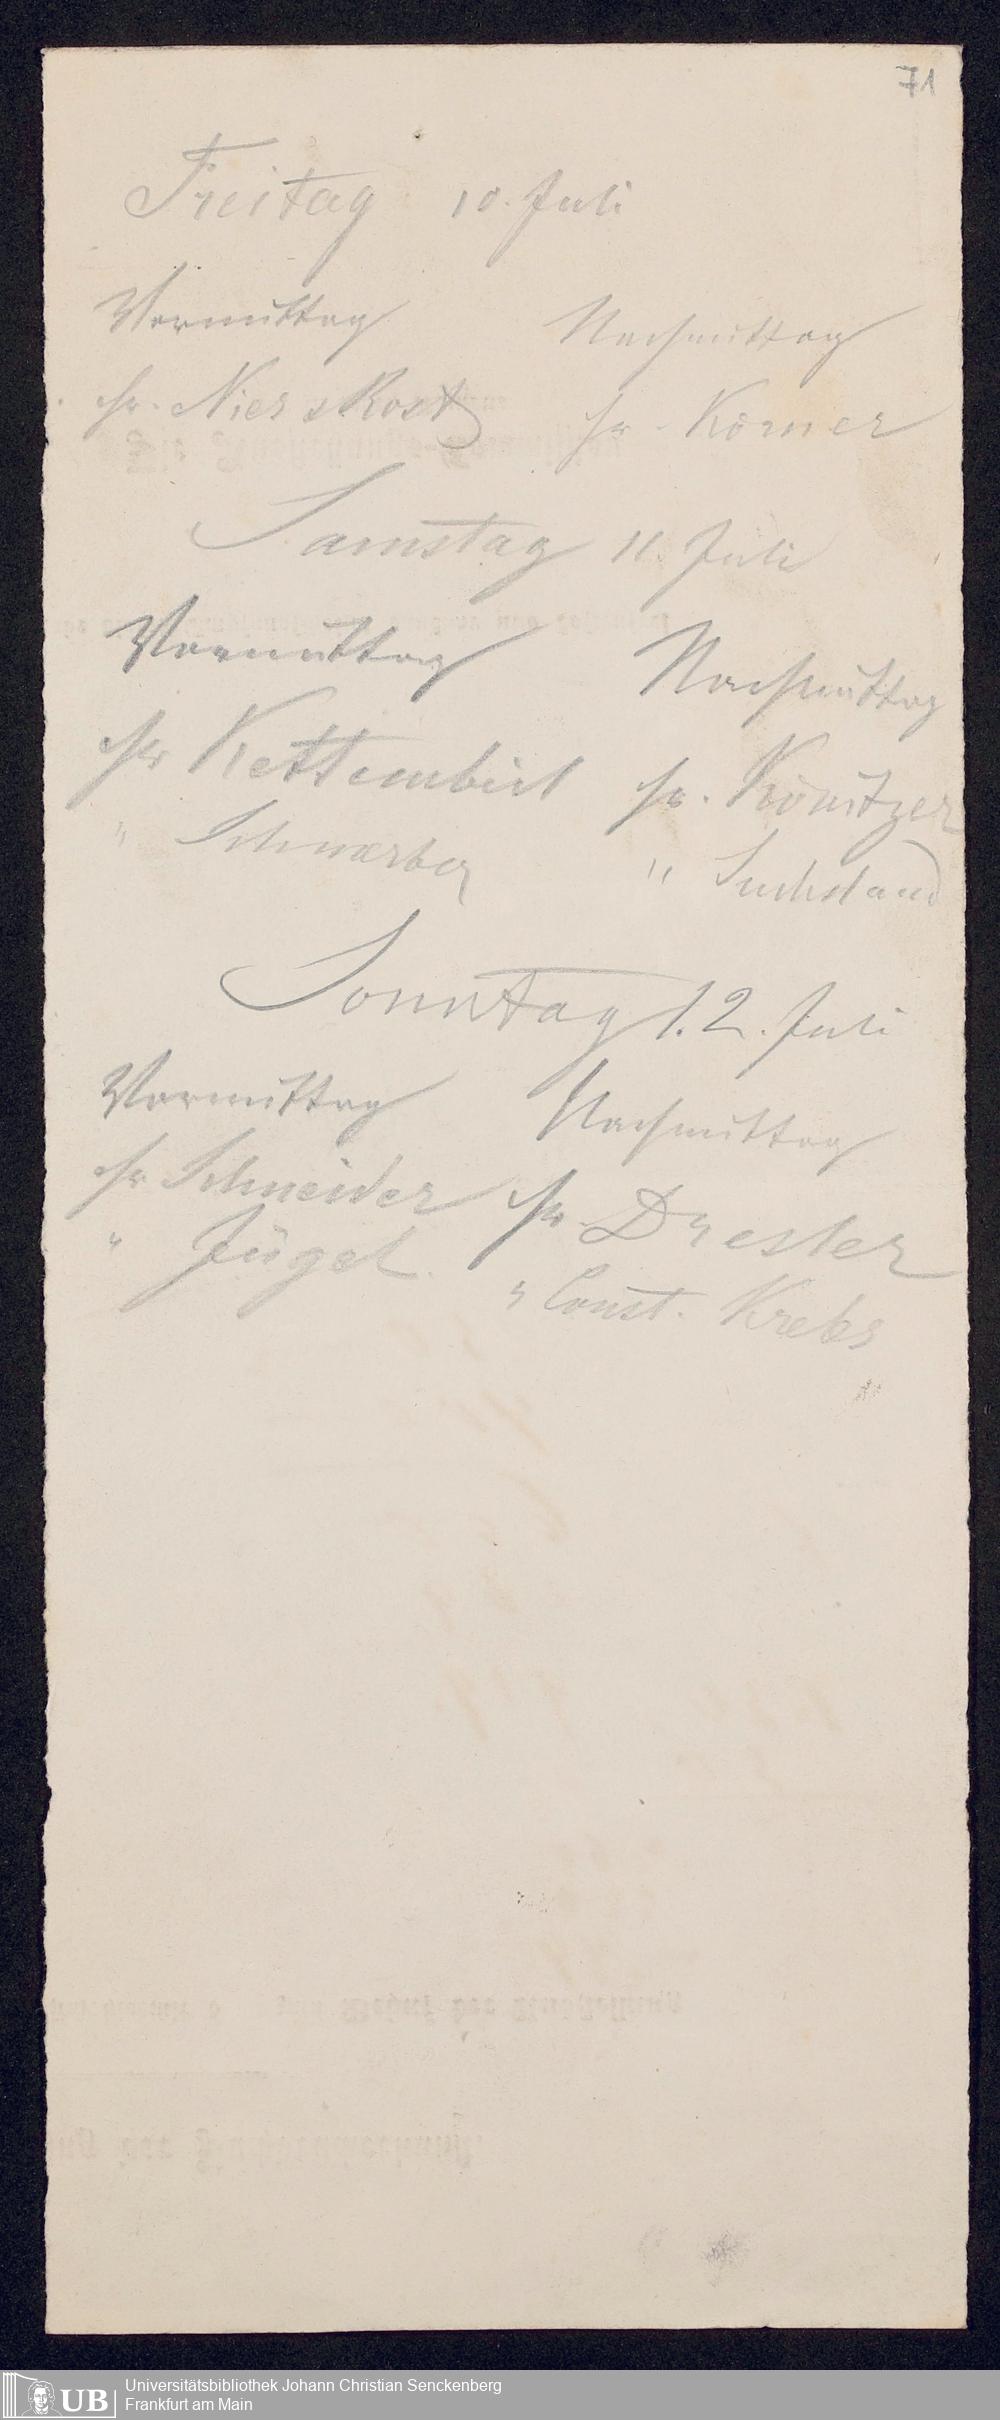 71
Freitag 10. Juli
Vormittag Nachmittag
Hr. Niers Rost Hr. Körner
Samstag 11. Juli
Vormittag Nachmittag
Hr Kettembeil Hr. Könitzer
" " Suchsland
Sonntag 12. Juli
Vormittag Nachmittag
Hr Schneider Hr. Dresler
" Jügel. " Const. Krebs
UB Universitätsbibliothek Johann Christian Senckenberg
Frankfurt am Main